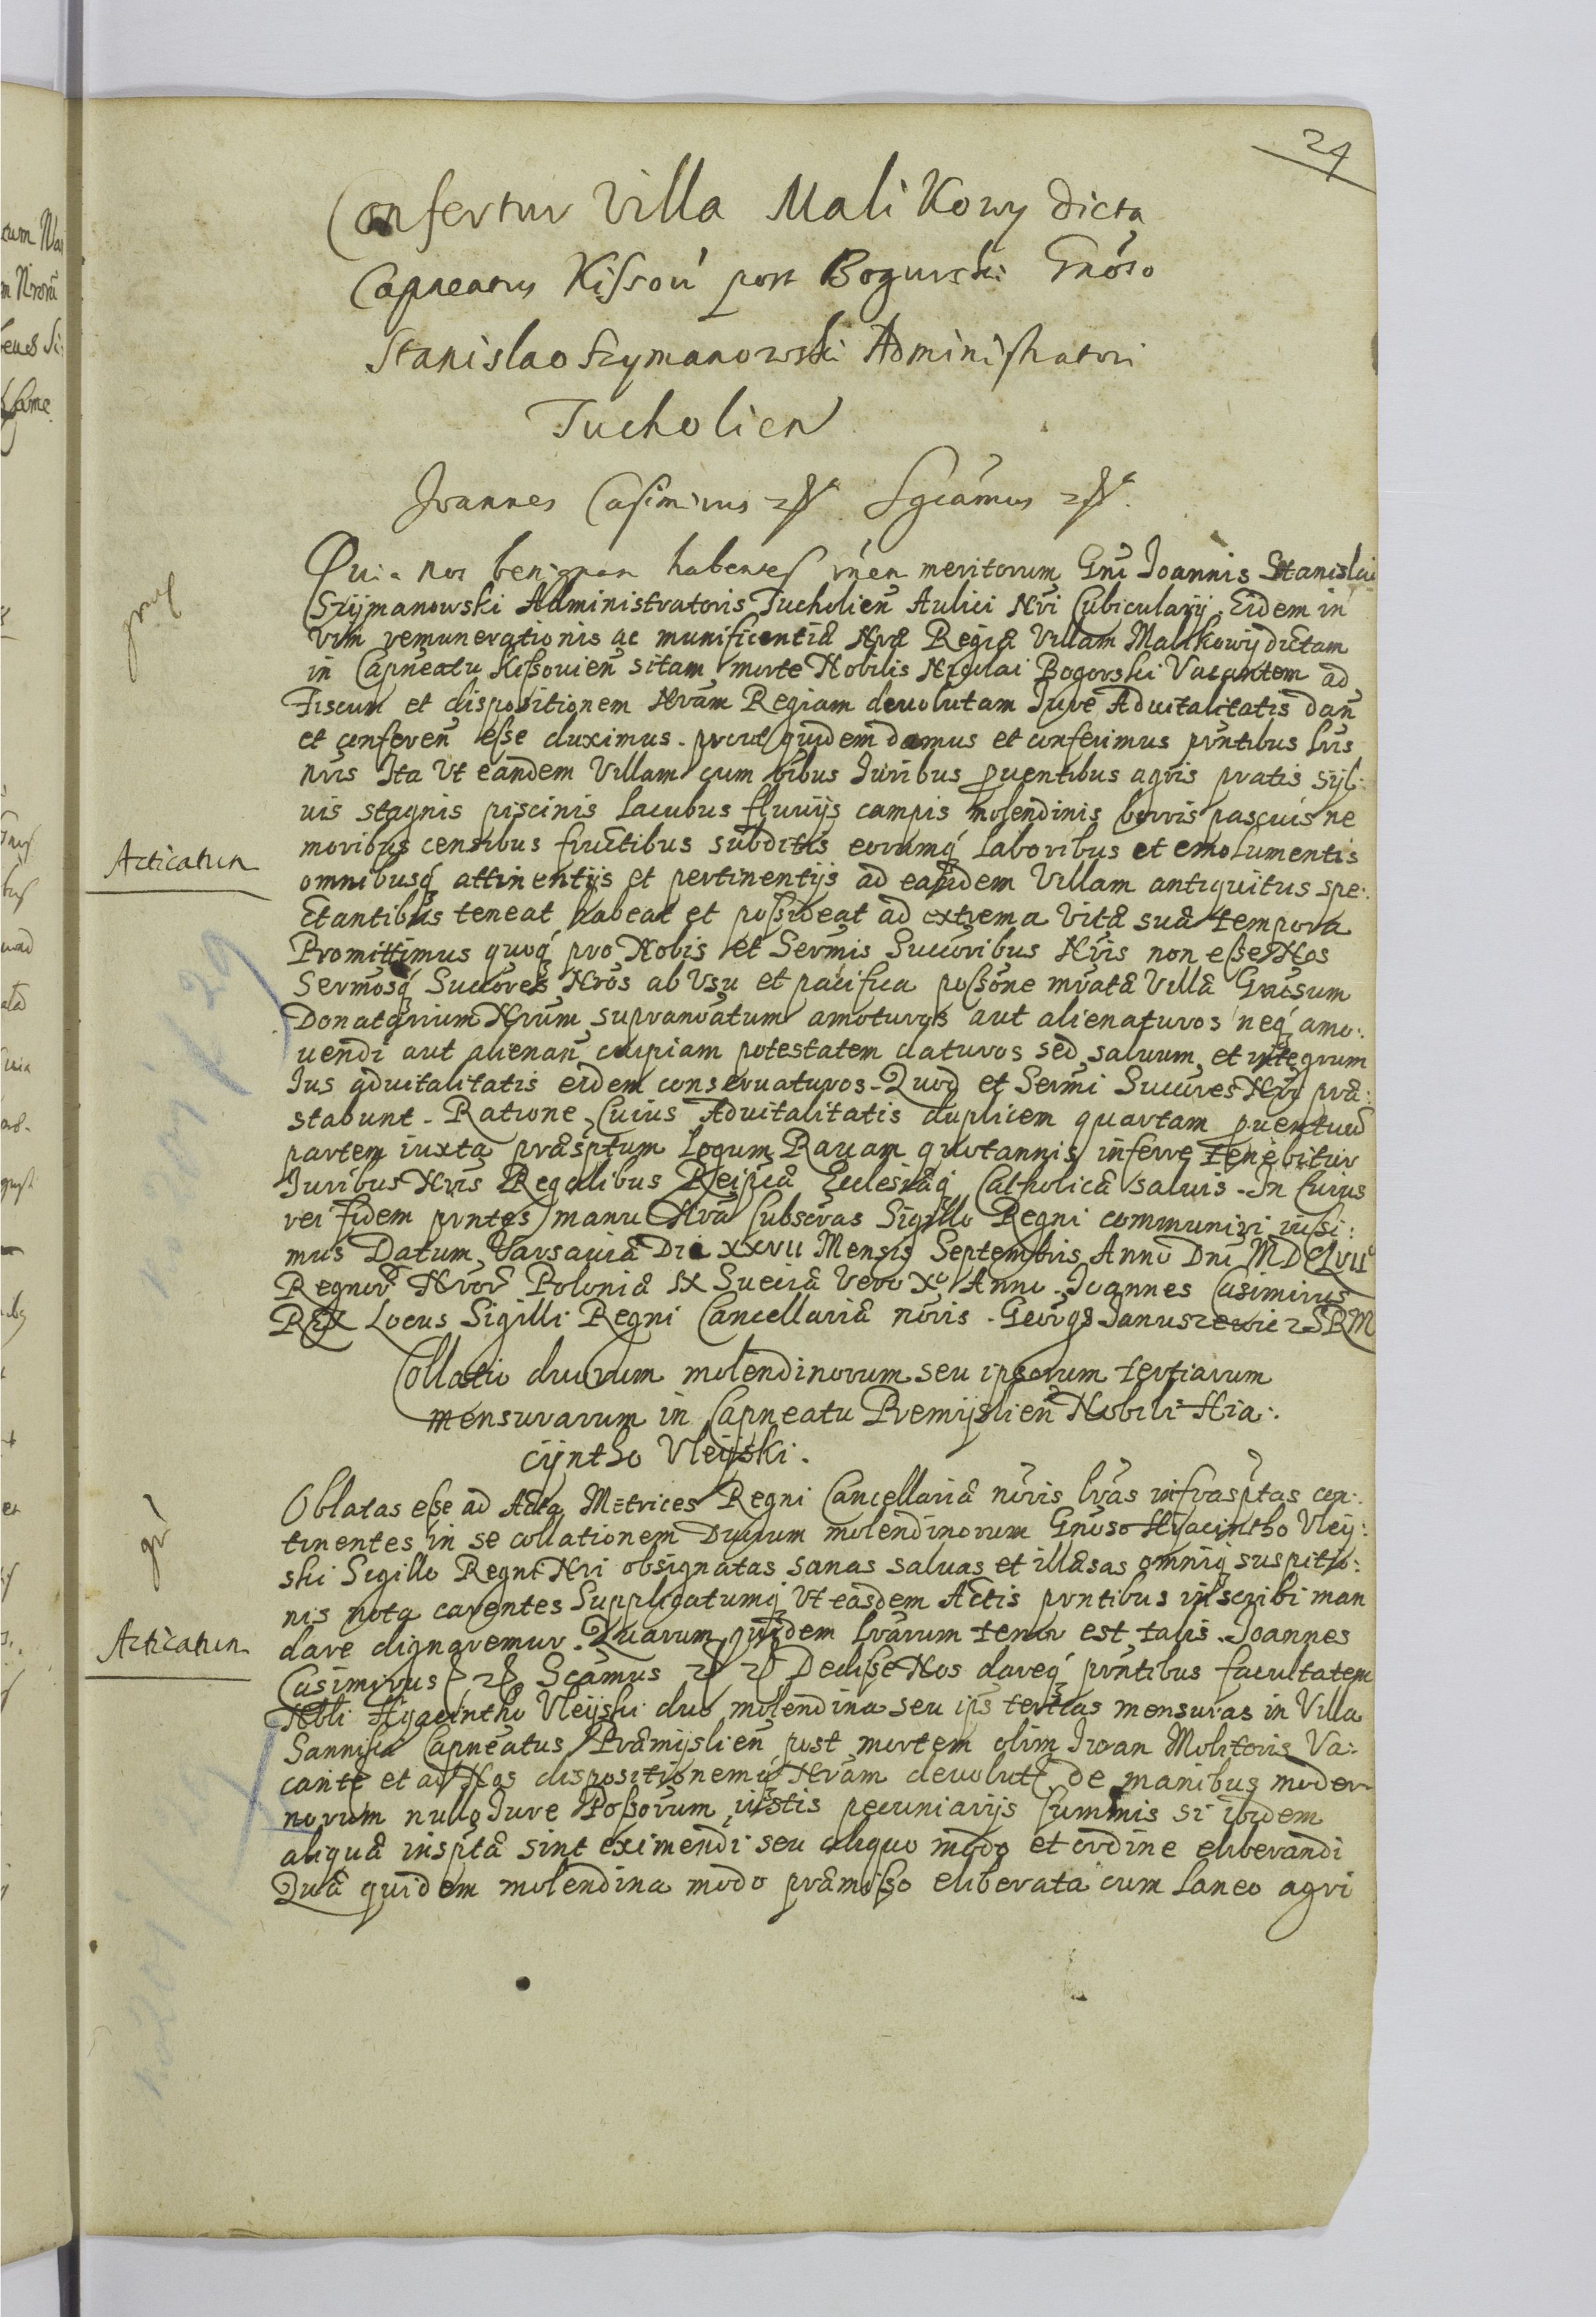 24
Confertur Villa Malikowy dicta
Capneatus Kissoũ post Bogurski Gnoso
Stanislao Szymanowski Administratori
Tucholien
Joannes Casimirus Sgcamus
Quia nos benignan habentes rñen meritorum Gnĩ Joannis Stanislai
Szÿmanowski Administratoris Tucholieñ Aulici Nrĩ Cubicularÿ, Eidem in
vim remunerationis ac munificentiæ Nræ Regiæ Villam Malikowÿ dictam
in Capñeatu Kissouieñ sitam morte Nobilis Nicolai Bogorski Vacantem ad
Fiscum et dispositionem Nrãm Regiam deuolutam Jure Aduitalitatis Dañ
et confereñ esse duximus. prout quidem damus et conferimus prñtibus lrĩs
nrĩs Ita Vt eandem Villam cum õibus Juribus prouentibus agris pratis sÿl:
uis stagnis piscinis lacubus fluuijs campis molendinis borris pascuis ne
moribus censibus fructibus subditis eorumq́ laboribus et emolumentis
omnibusq́ attinentijs et pertinentijs ad eandem Villam antiquitus spe:
ctantibus teneat habeat et possideat ad extrema Vitæ suæ tempora
Promittimus quoq́ pro Nobis et Serm̃is Succoribus Nrĩs non esse Nos
Sermosq́ Succores Nrõs ab Vsu et pacifica possone mratæ Villæ Gnõsum
Donatarium Nrũm supranoatum amoturos aut alienaturos neq́ amo:
uendi aut alienañ cuipiam potestatem daturos sed saluum et integrum
Ius aduitalitatis eidem conseruaturos. Quod et Serm̃i Succores Nrĩ præ:
stabunt. Ratione Cuius Aduitalitatis duplicem quartam prouentuũ
partem iuxta præsptum Legum Rauam quotannis inferre tenebitur
Juribus Nrĩs Regalibus Reipcæ Ecclesiæq́ Catholicæ saluis. In Cuius
rei fidem prñtes manu Nra Subscras Sigillo Regni communiri iussi:
mus Datum Varsauiæ Die XXVII Mensis Septembris Anno Dnĩ MDCLVII
Regnorũ Nrorũ Poloniæ IX Sueciæ Vero X Anno. Joannes Casimirus
REX Locus Sigilli Regni Cancellariæ noris. Georgs Januszewicz SRM
Collatio duorum molendinorum seu ipsorum tertiarum
mensurarum in Capneatu Premijslieñ Nobili Hia:
cÿntho Vleÿski.
Oblatas esse ad Acta Metrices Regni Cancellariæ noris lrãs infrasptas con:
tinentes in se collationem Duorum molendinorum Gnoso Hyacintho Vleÿ:
ski Sigillo Regni Nri obsignatas sanas saluas et illæsas omniq́ suspitio:
nis nota carentes Supplicatumq́ Vt easdem Actis prñtibus inscribi man
dare dignaremur. Quarum quidem lrãrum tenor est talis. Joannes
Casimirus Scamus Dedisse Nos dareq́ prñtibus facultatem
Nbli Hyacintho Vleÿski duo molendina seu ips tertias mensuras in Villa
Capneatus Præmijslieñ post mortem olim Iwan Molitoris Va:
cante et ad Nos dispositionemq́ Nrãm deuolut de manibus moder
norum nullo Jure Possorum iustis pecuniarijs Summis si ibidem
aliquæ insptæ sint eximendi seu aliquo modo et ordine eliberandi
Quæ quidem molendina modo præmisso eliberata cum laneo agri
Acticatum
Acticatum